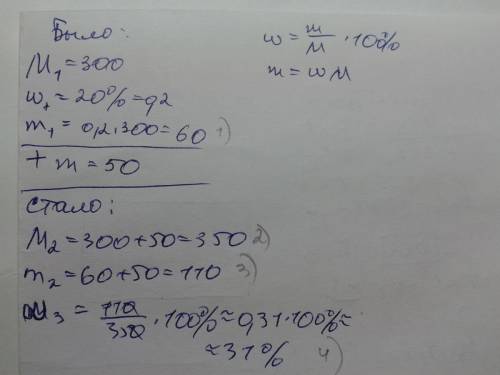 Было:
M₁ = 300
w₁ = 20% = 0,2
m₁ = 0,2 · 300 = 60 1)
+ m = 50
стало:
M₂ = 300 + 50 = 350 2)
m₂ = 60 + 50 = 110 3)
w₃ = 110/350 · 100% ≈ 0,31 · 100% ≈
≈ 31% 4)
w = m/M · 100%
m = wM